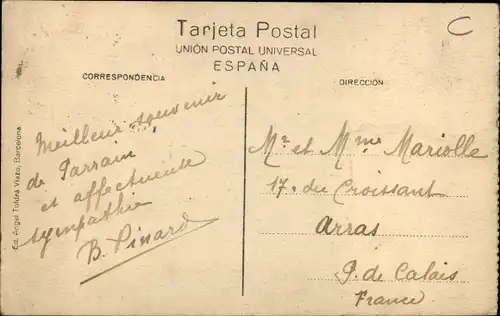 Tarjeta Postal
UNIÓN POSTAL UNIVERSAL
ESPAÑA
C
CORRESPONDENCIA
DIRECCIÓN
Meilleur souvenir
de Parrain
et affectueuse
sympathie
B. Pinard
Mr et Mme Mariolle
17. du Croissant
Arras
P. de Calais
France
Ed. Angel Toldrá Viazo, Barcelona